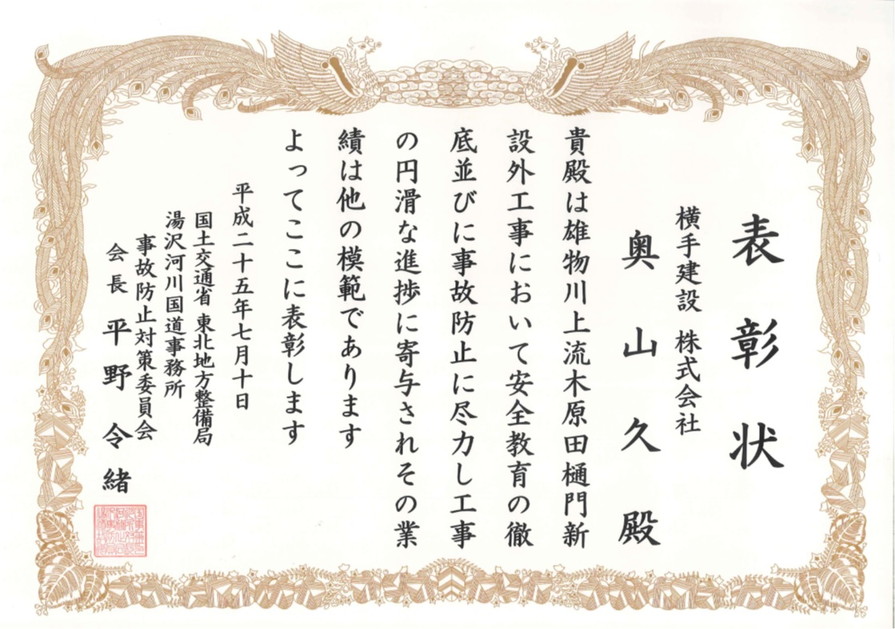 表彰状
横手建設 株式会社
奥山久殿
貴殿は雄物川上流木原田樋門新
設外工事において安全教育の徹
底並びに事故防止に尽力し工事
の円滑な進捗に寄与されその業
績は他の模範であります
よってここに表彰します
平成二十五年七月十日
国土交通省 東北地方整備局
湯沢河川国道事務所
事故防止対策委員会
会長 平野令緒